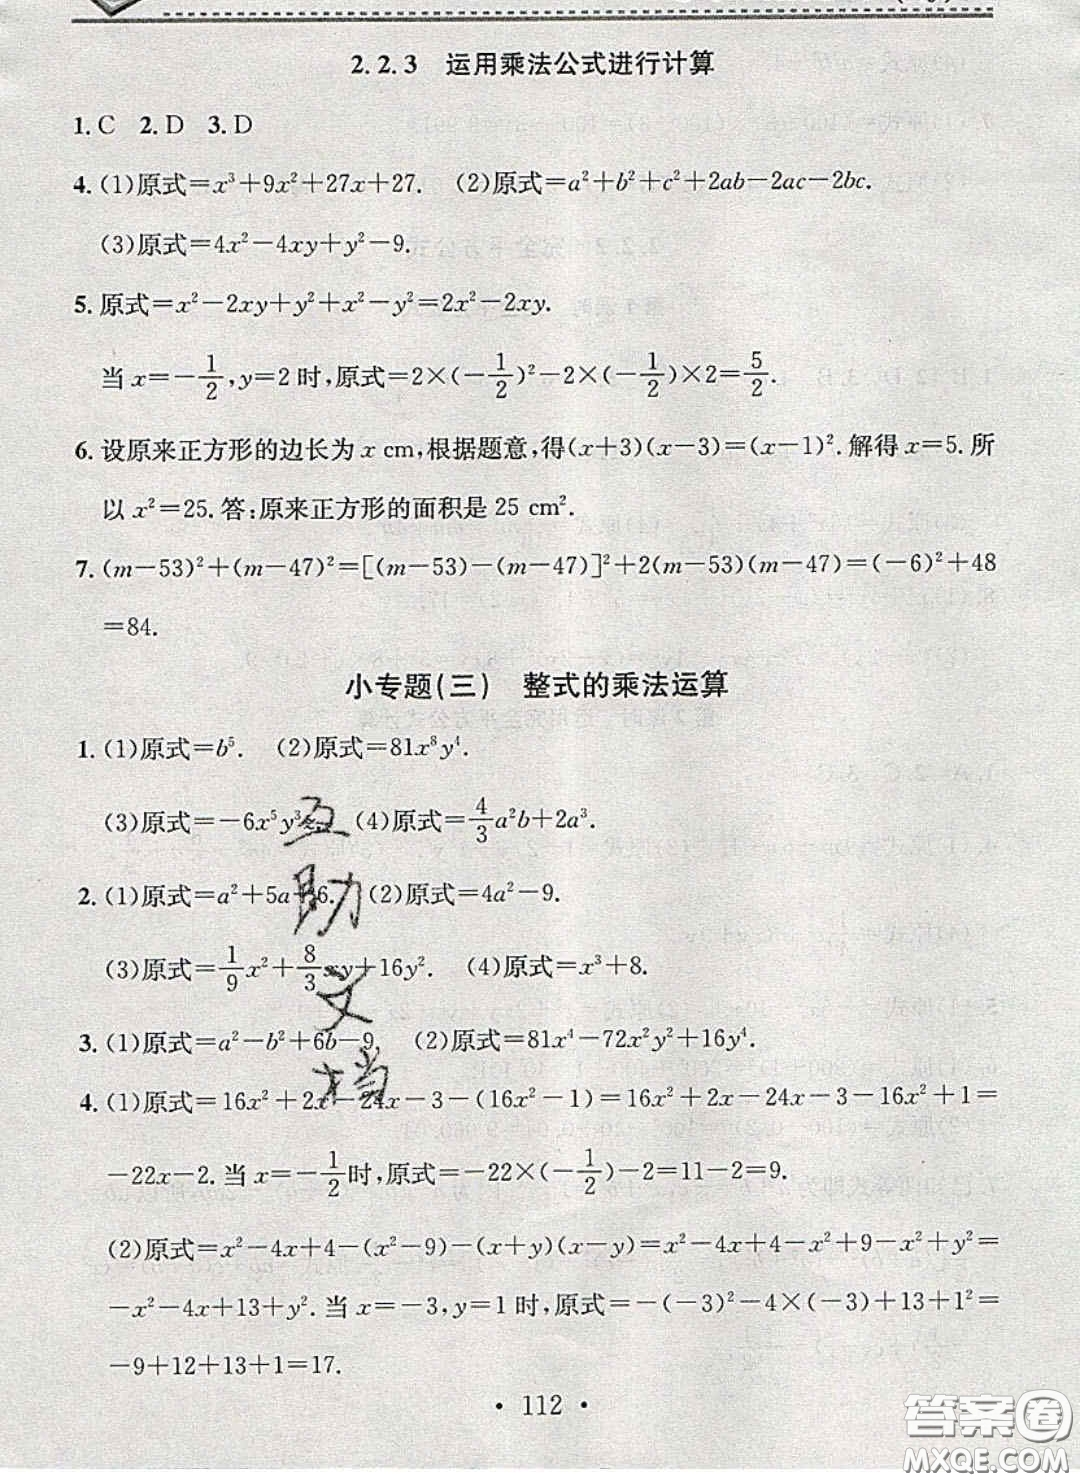 2.2.3 运用乘法公式进行计算
1. C 2. D 3. D
4. (1)原式=x³+9x²+27x+27. (2)原式=a²+b²+c²+2ab-2ac-2bc.
(3)原式=4x²-4xy+y²-9.
5. 原式=x²-2xy+y²+x²-y²=2x²-2xy.
当 x=-1/2,y=2 时,原式=2×(-1/2)²-2×(-1/2)×2=5/2.
6. 设原来正方形的边长为 x cm,根据题意,得(x+3)(x-3)=(x-1)².解得 x=5.所
以 x²=25.答:原来正方形的面积是 25 cm².
7. (m-53)²+(m-47)²=[(m-53)-(m-47)]²+2(m-53)(m-47)=(-6)²+48
=84.
小专题(三) 整式的乘法运算
1. (1)原式=b⁵. (2)原式=81x⁸y⁴.
(3)原式=-6x⁵y³ (4)原式=4/3a²b+2a³.
2. (1)原式=a²+5a+6. (2)原式=4a²-9.
(3)原式=1/9x²+8/3xy+16y². (4)原式=x³+8.
3. (1)原式=a²-b²+6b-9. (2)原式=81x⁴-72x²y²+16y⁴.
4. (1)原式=16x²+2x-24x-3-(16x²-1)=16x²+2x-24x-3-16x²+1=
-22x-2.当 x=-1/2时,原式=-22×(-1/2)-2=11-2=9.
(2)原式=x²-4x+4-(x²-9)-(x+y)(x-y)=x²-4x+4-x²+9-x²+y²=
-x²-4x+13+y².当 x=-3,y=1 时,原式=-(-3)²-4×(-3)+13+1²=
-9+12+13+1=17.
• 112 •
互
助
文
档
答案圈
MXQE.COM